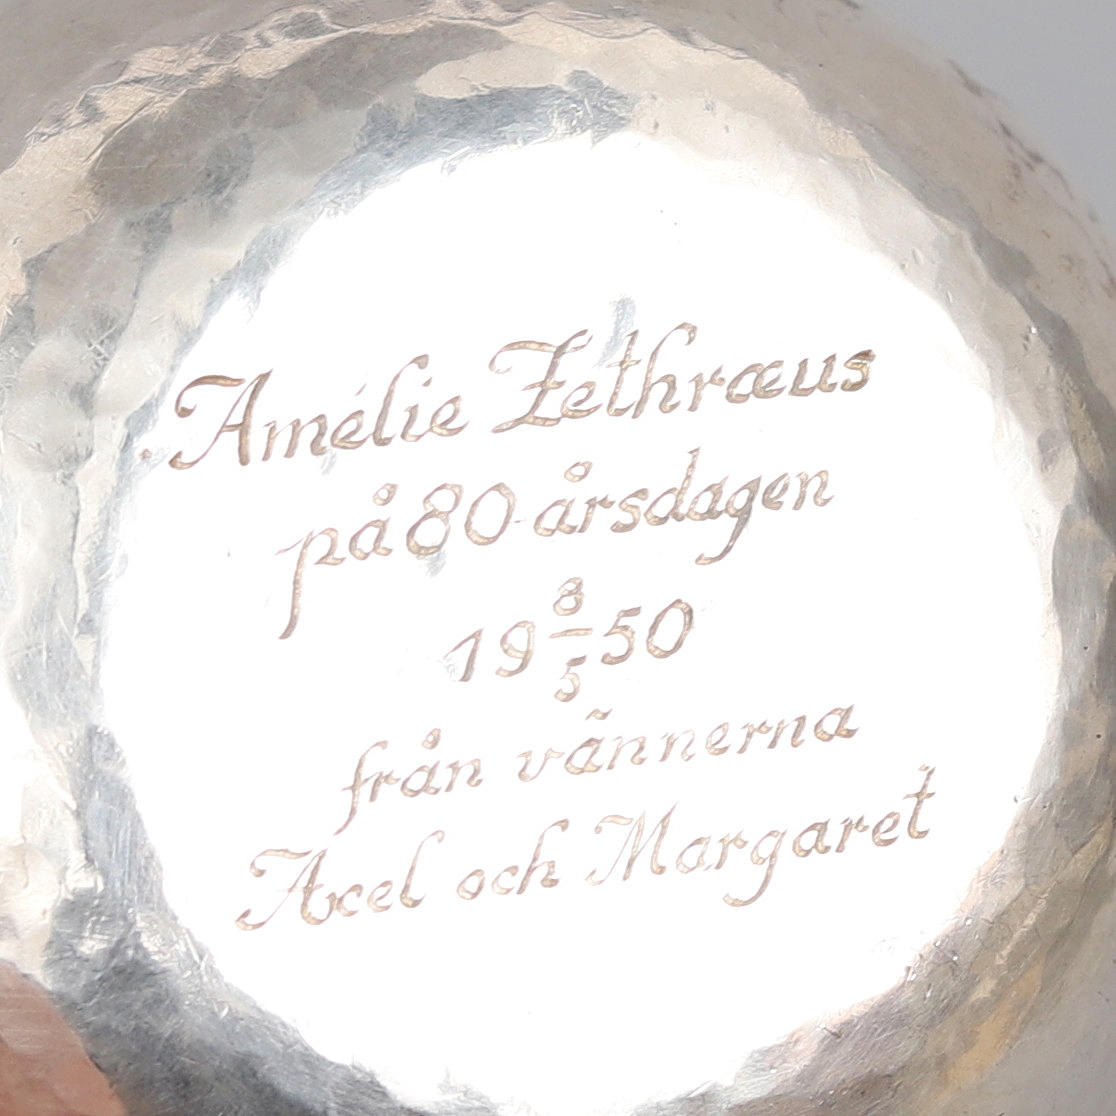 Amélie Zethræus
på 80 årsdagen
19 8/5 50
från vännerna
Axel och Margaret